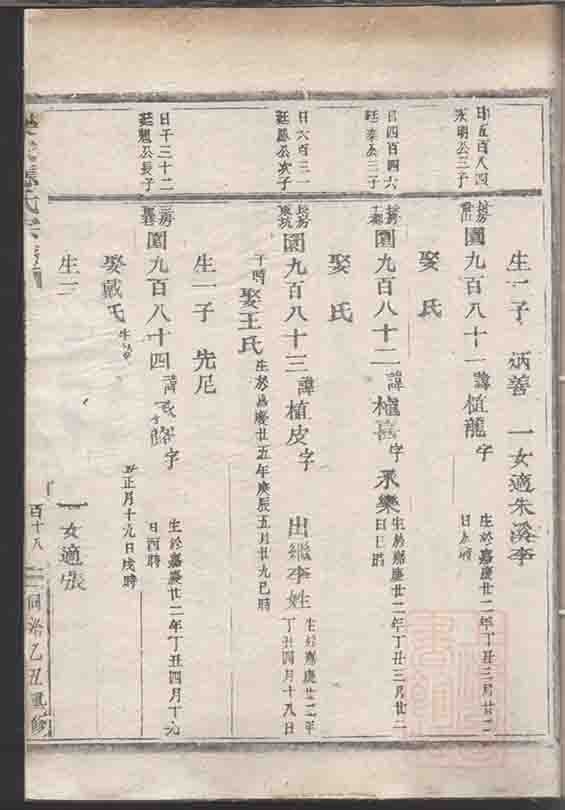 生一子 炳善 一女適朱溪李
日五百八四
永明公三子
園九百八十一 諱植龍 字
生於嘉慶廿二年丁丑三月廿二
娶 氏
日四百四六
廷 公三子
園九百八十二 諱 喜 字 永樂
生於嘉慶廿二年丁丑三月廿二
娶 氏
日六百三一
廷 公次子
長房
園九百八十三 諱植皮 字 出繼李姓
生於嘉慶廿二年
丁丑四月十八日
時 娶王氏 生於嘉慶廿五年庚辰五月廿九巳時
生一子 先尼
日千三十二
廷魁公長子
三房
園九百八十四 諱 字
生於嘉慶廿二年丁丑四月十九
日酉時
娶戴氏 生 丑正月十九日戌時
生二 一女適張
氏宗譜
百十八 同治乙丑 修